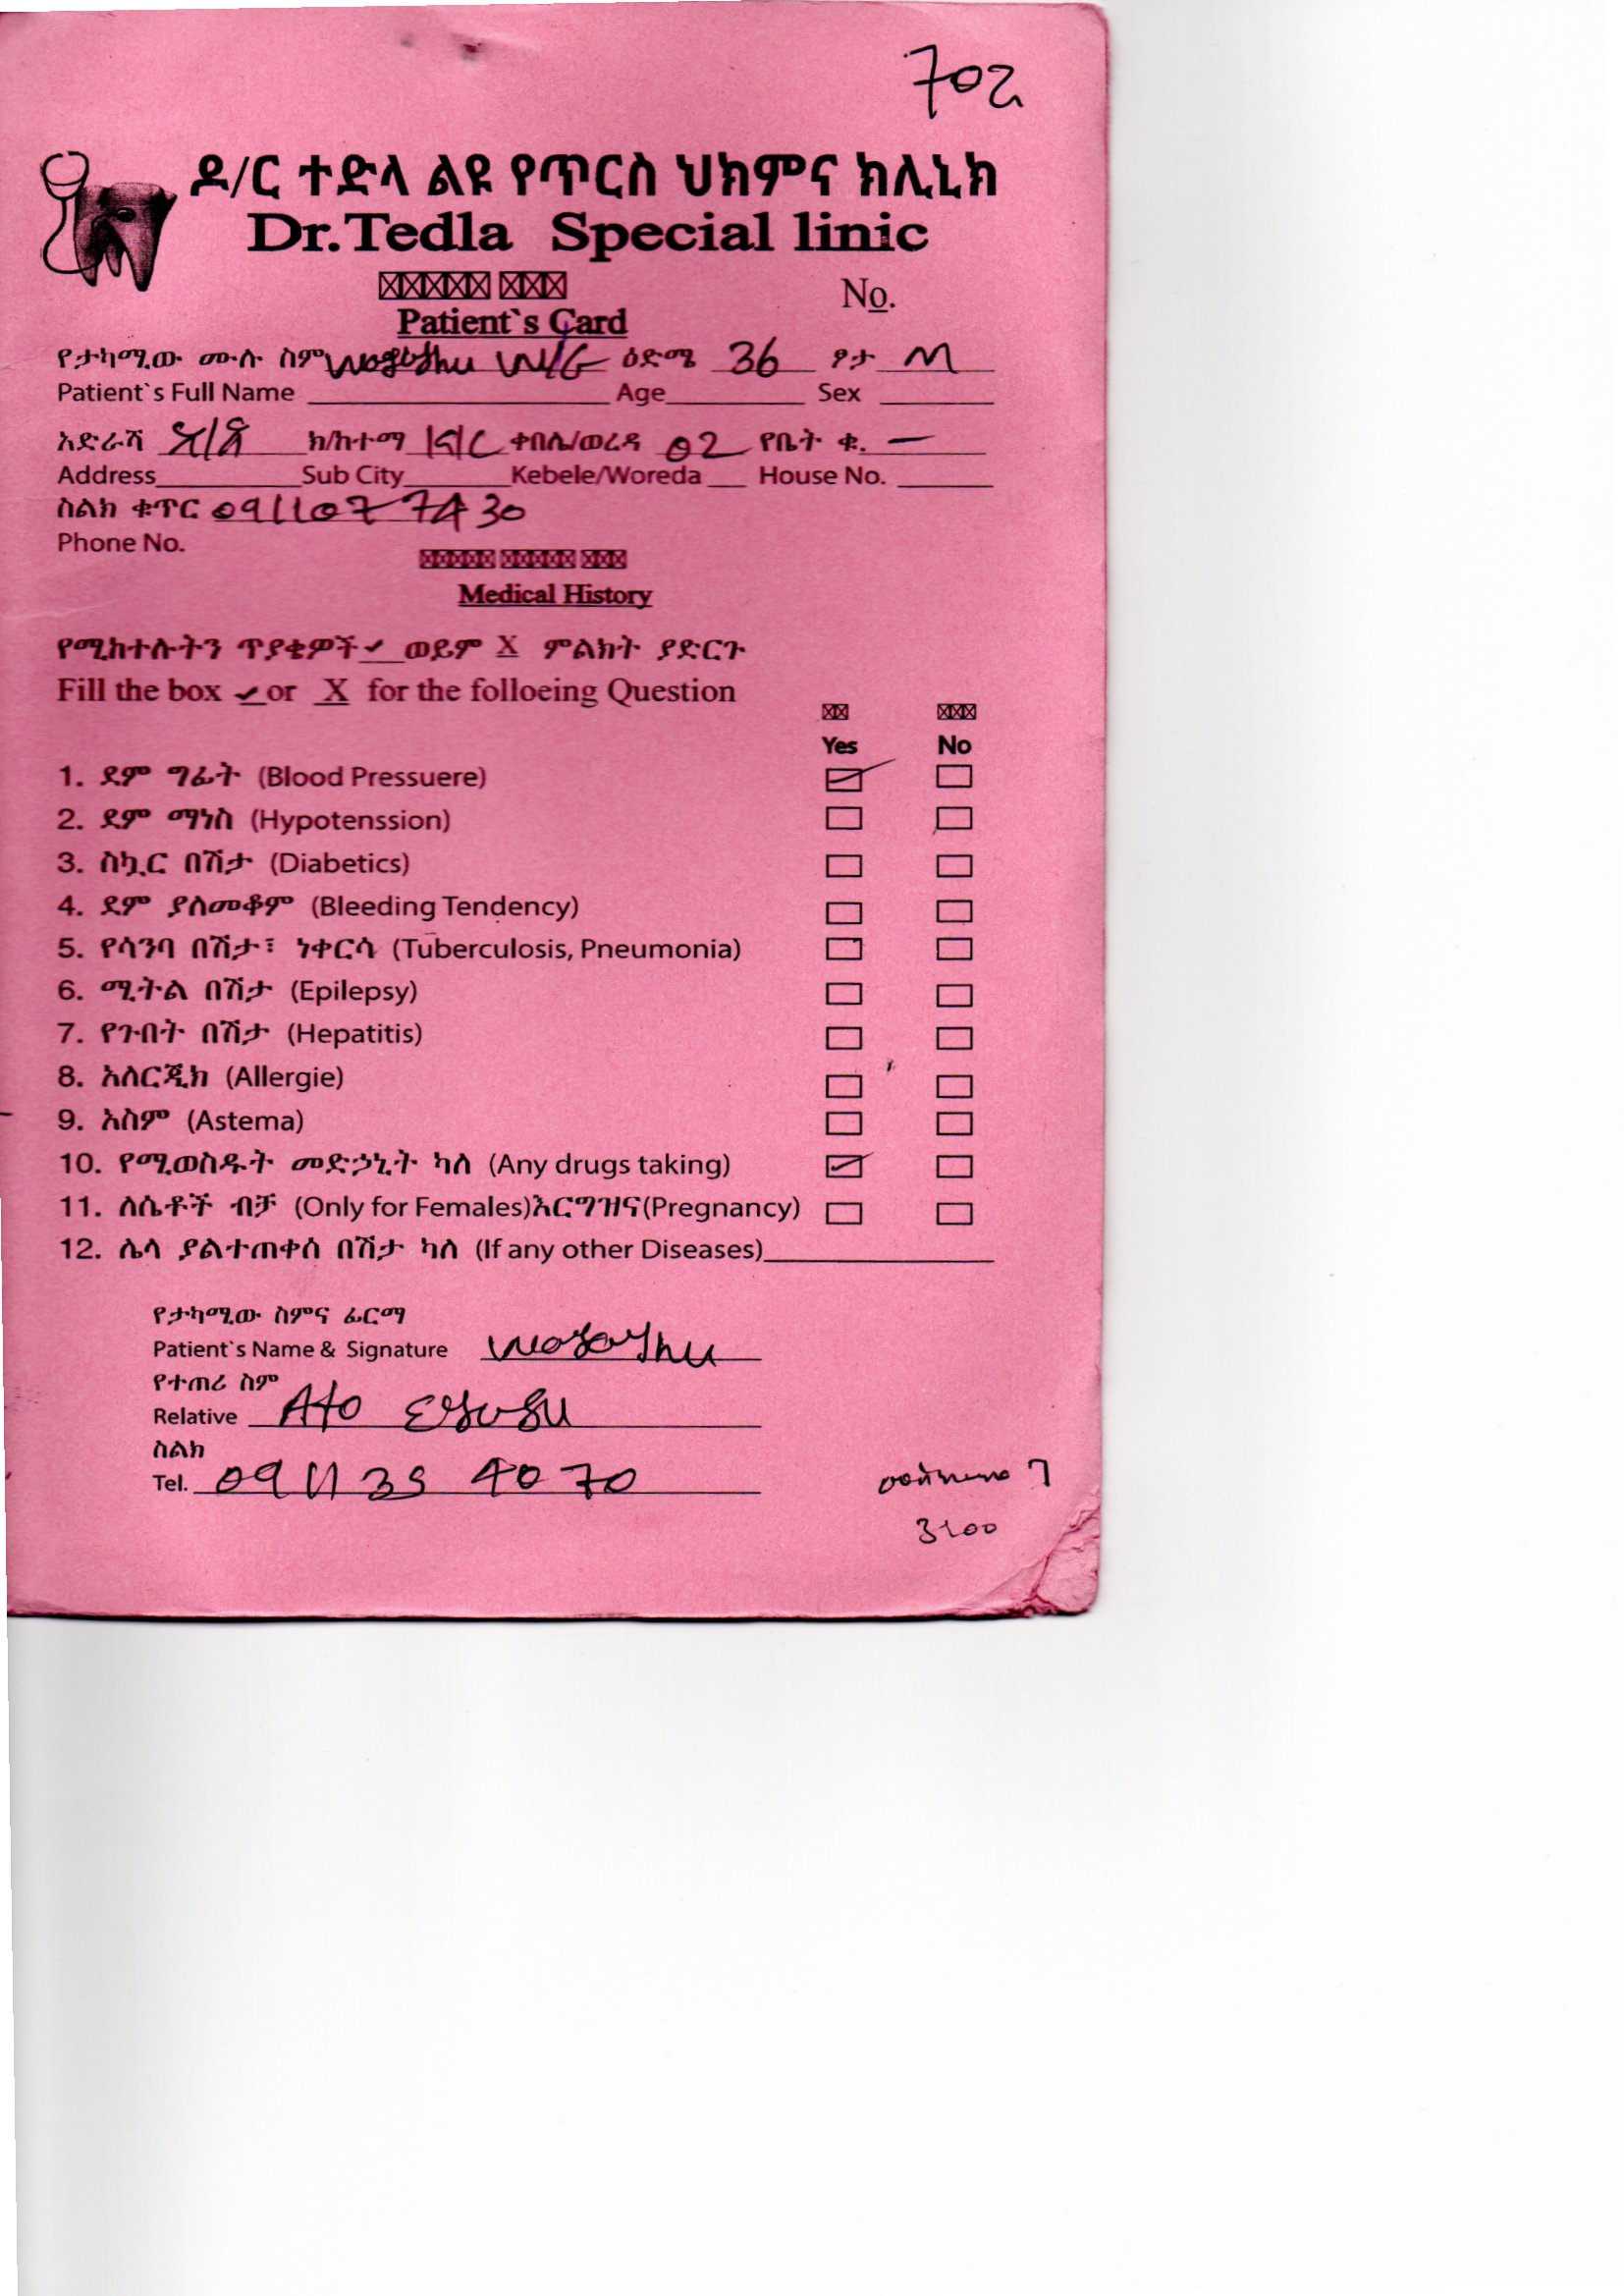 702
ዶ/ር ተድላ ልዩ የጥርስ ህክምና ክሊኒክ
Dr.Tedla Special linic
No.
Patient`s Card
የታካሚው ሙሉ ስም W/G ዕድሜ 36 ፆታ M
Patient`s Full Name Age Sex
አድራሻ ክ/ከተማ ቀበሌ/ወረዳ 02 የቤት ቁ. —
Address Sub City Kebele/Woreda House No.
ስልክ ቁጥር 0911077430
Phone No.
Medical History
የሚከተሉትን ጥያቄዎች ✓ ወይም X ምልክት ያድርጉ
Fill the box ✓ or X for the folloeing Question
Yes No
1. ደም ግፊት (Blood Pressuere) ✓
2. ደም ማነስ (Hypotenssion)
3. ስኳር በሽታ (Diabetics)
4. ደም ያለመቆም (Bleeding Tendency)
5. የሳንባ በሽታ፣ ነቀርሳ (Tuberculosis, Pneumonia)
6. ሚትል በሽታ (Epilepsy)
7. የጉበት በሽታ (Hepatitis)
8. አለርጂክ (Allergie)
9. አስም (Astema)
10. የሚወስዱት መድኃኒት ካለ (Any drugs taking) ✓
11. ለሴቶች ብቻ (Only for Females)እርግዝና(Pregnancy)
12. ሌላ ያልተጠቀሰ በሽታ ካለ (If any other Diseases)
የታካሚው ስምና ፊርማ
Patient`s Name & Signature
የተጠሪ ስም
Relative Ato
ስልክ
Tel. 0911 39 40 70
3100